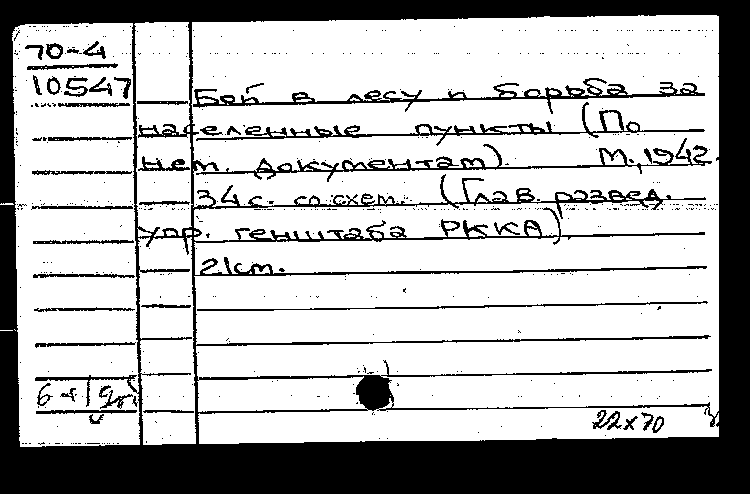 70-4
10547
Бой в лесу и борьба за
населенные пункты (По
нем. документам). М., 1942.
34 с. со схем. (Глав. развед.
упр. генштаба РККА).
21 cm.
22x70